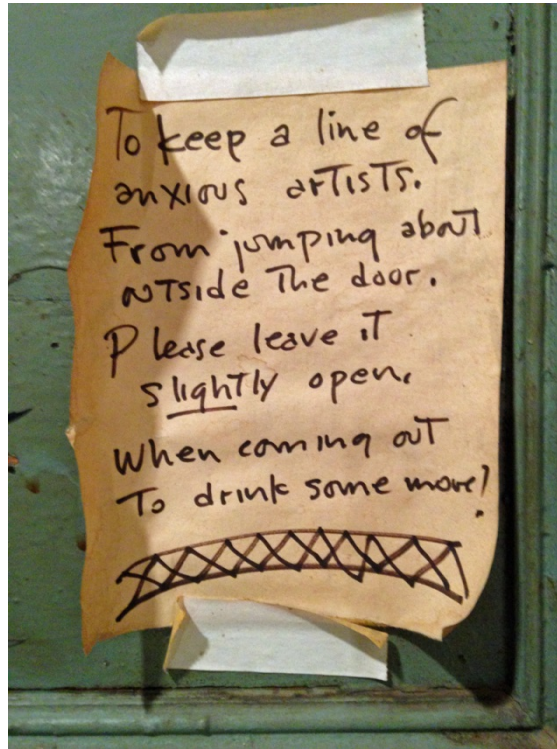 To keep a line of
anxious artists.
From jumping about
outside the door.
Please leave it
slightly open.
When coming out
To drink some more!